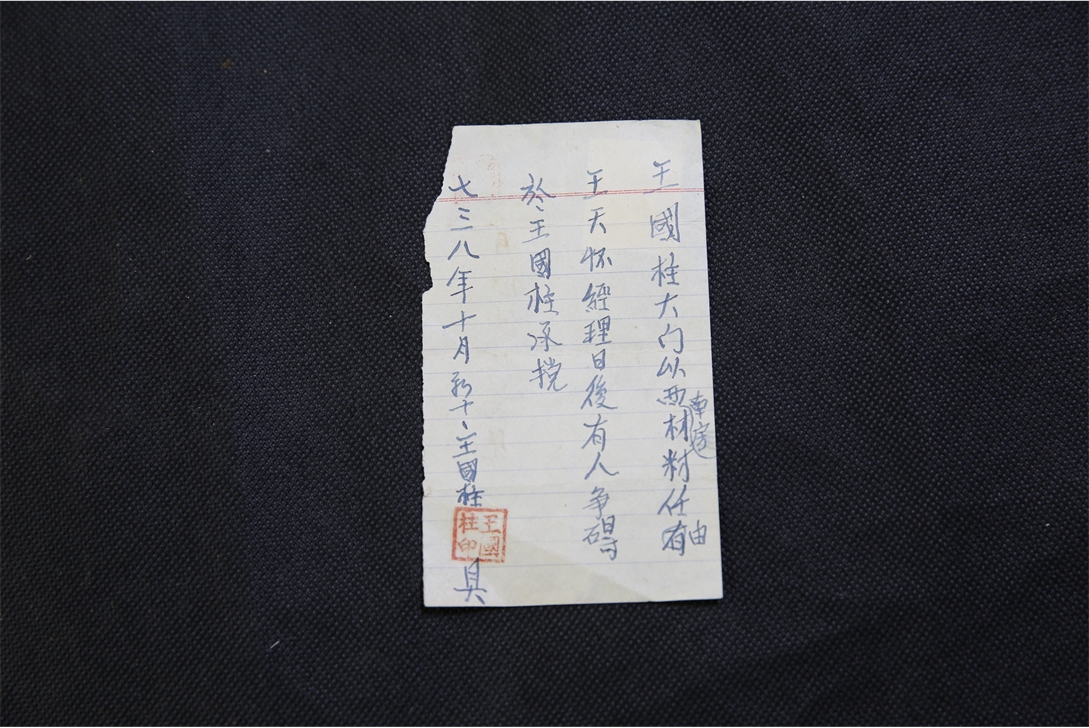 王國柱大门以西南房材料任由
王天怀經理日後有人争碍
於王國柱承挡
七三八年十月初十立王國柱
王國柱印
具